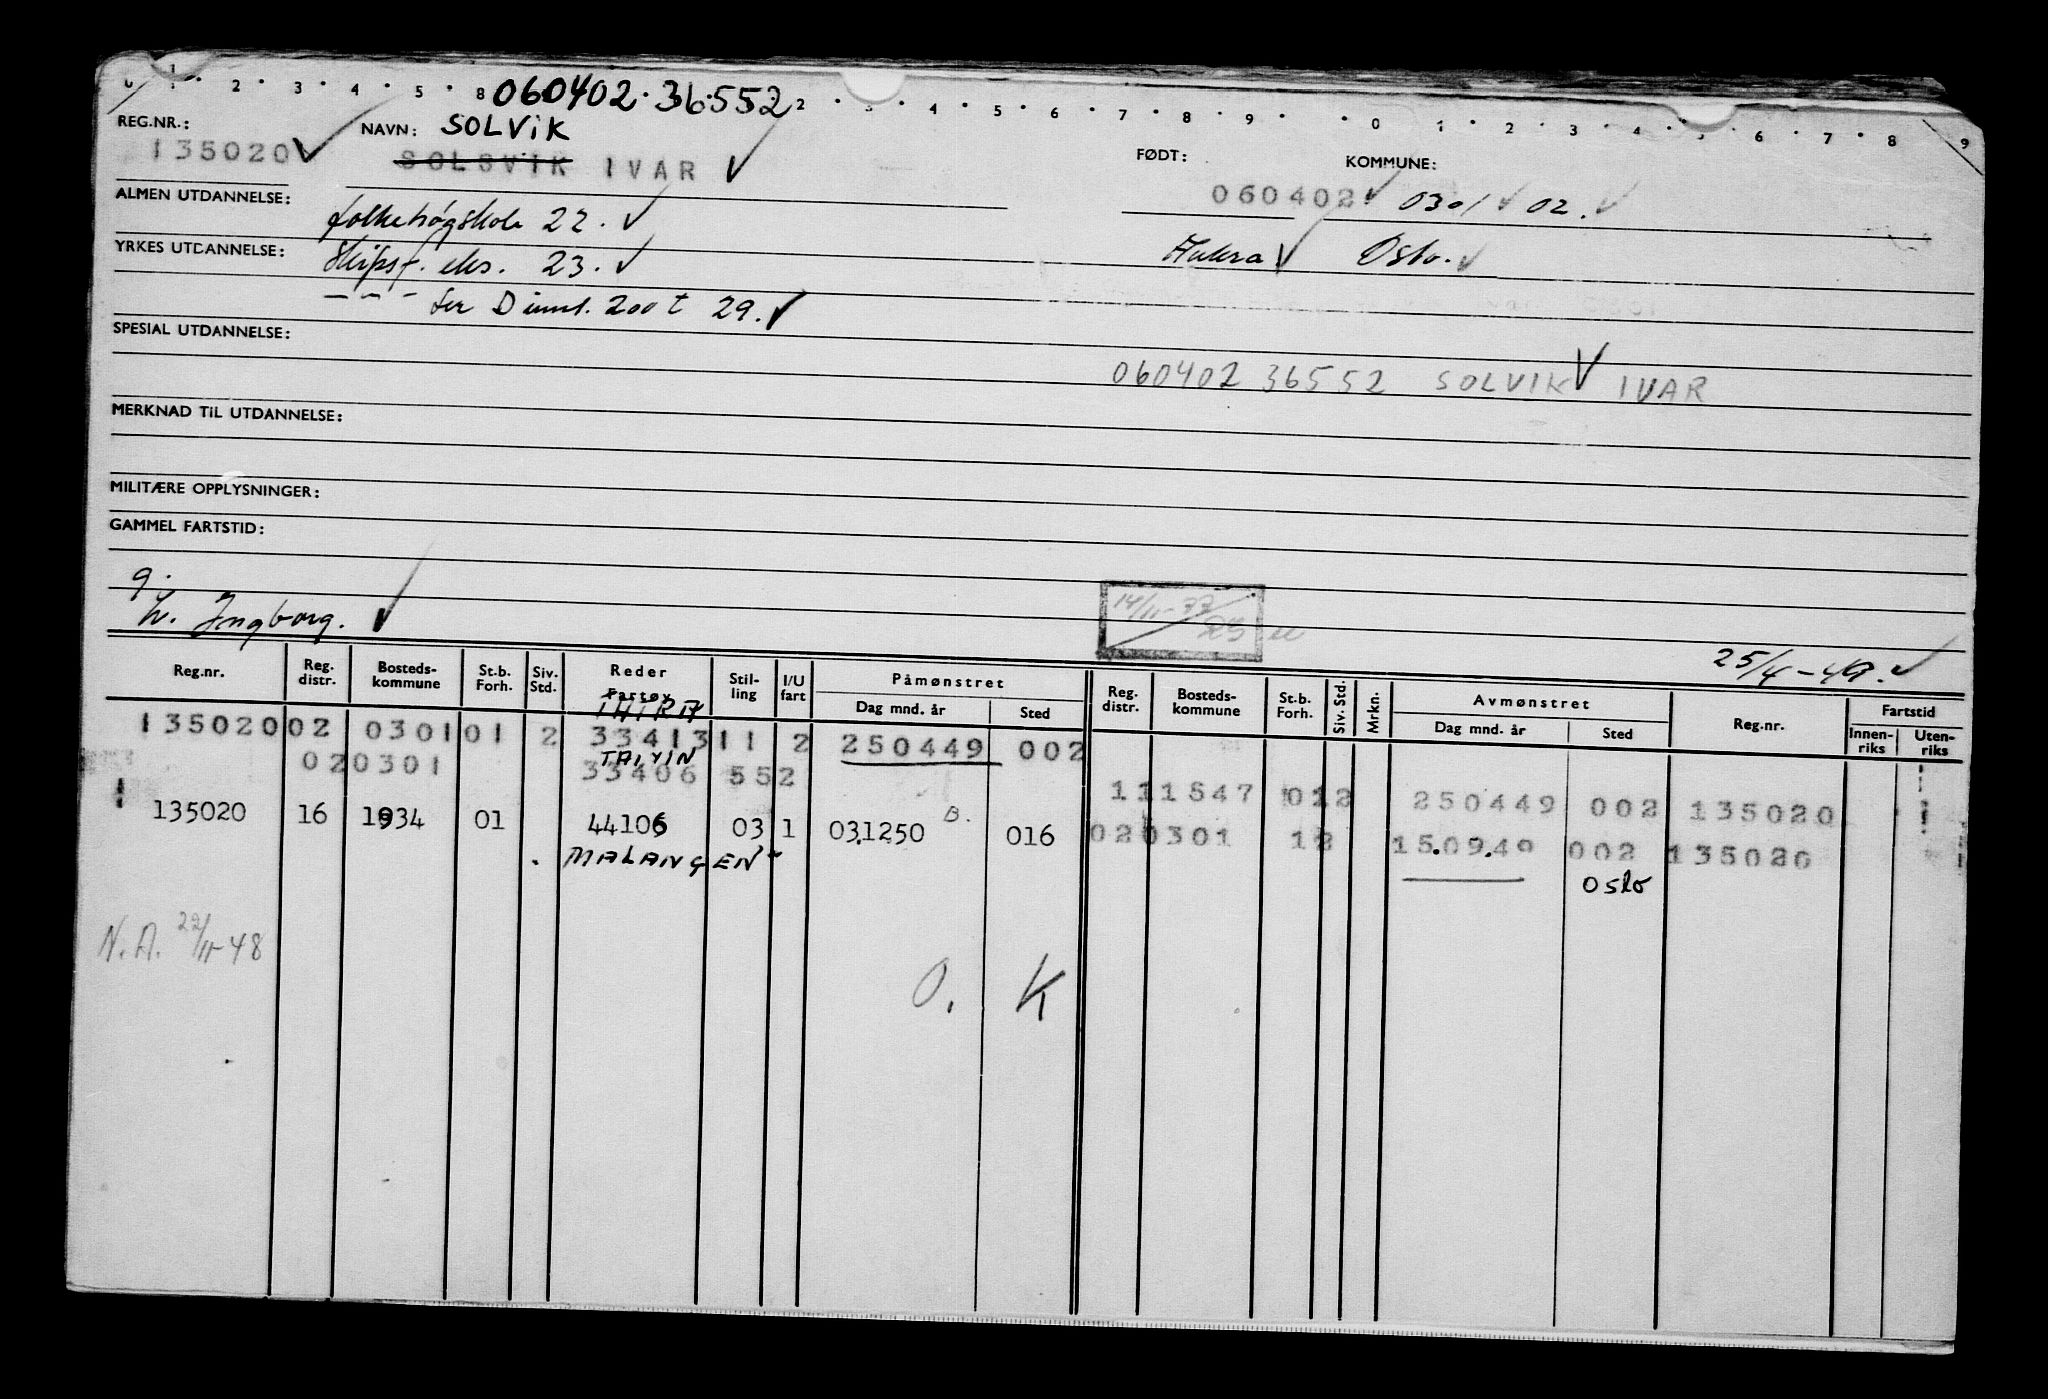 0 1 2 3 4 5 8 060402.36.552 2 3 4 5 6 7 8 9 0 1 2 3 4 5 6 7 8 9
REG.NR.: NAVN: SOLVIK
135020 SOLSVIK IVAR FØDT: KOMMUNE:
060402 0301 02.
ALMEN UTDANNELSE: folkehøgskole 22.
YRKES UTDANNELSE: Skipsf. eks. 23. Oslo.
--- for D innt. 200 t 29.
SPESIAL UTDANNELSE:
060402 36552 SOLVIK IVAR
MERKNAD TIL UTDANNELSE:
MILITÆRE OPPLYSNINGER:
GAMMEL FARTSTID:
g.
h. Ingborg.
14/11-77
25/4-49.
Reg.nr. Reg. distr. Bosteds-kommune St.b. Forh. Siv. Std. Reder Fartøy Stil-ling I/U fart Påmønstret Dag mnd. år Sted Reg. distr. Bosteds-kommune St.b. Forh. Siv. Std. Mrkn. Avmønstret Dag mnd. år Sted Reg.nr. Fartstid Innen-riks Uten-riks
THIRA
135020 02 0301 01 2 33413 11 2 250449 002
TAIYIN
020301 33406 552
111547 012 250449 002 135020
135020 16 1934 01 44106 03 1 031250 B. 016
020301 12 15.09.49 002 135020
"MALANGEN"
Oslo
N.A. 22/11-48
O. K